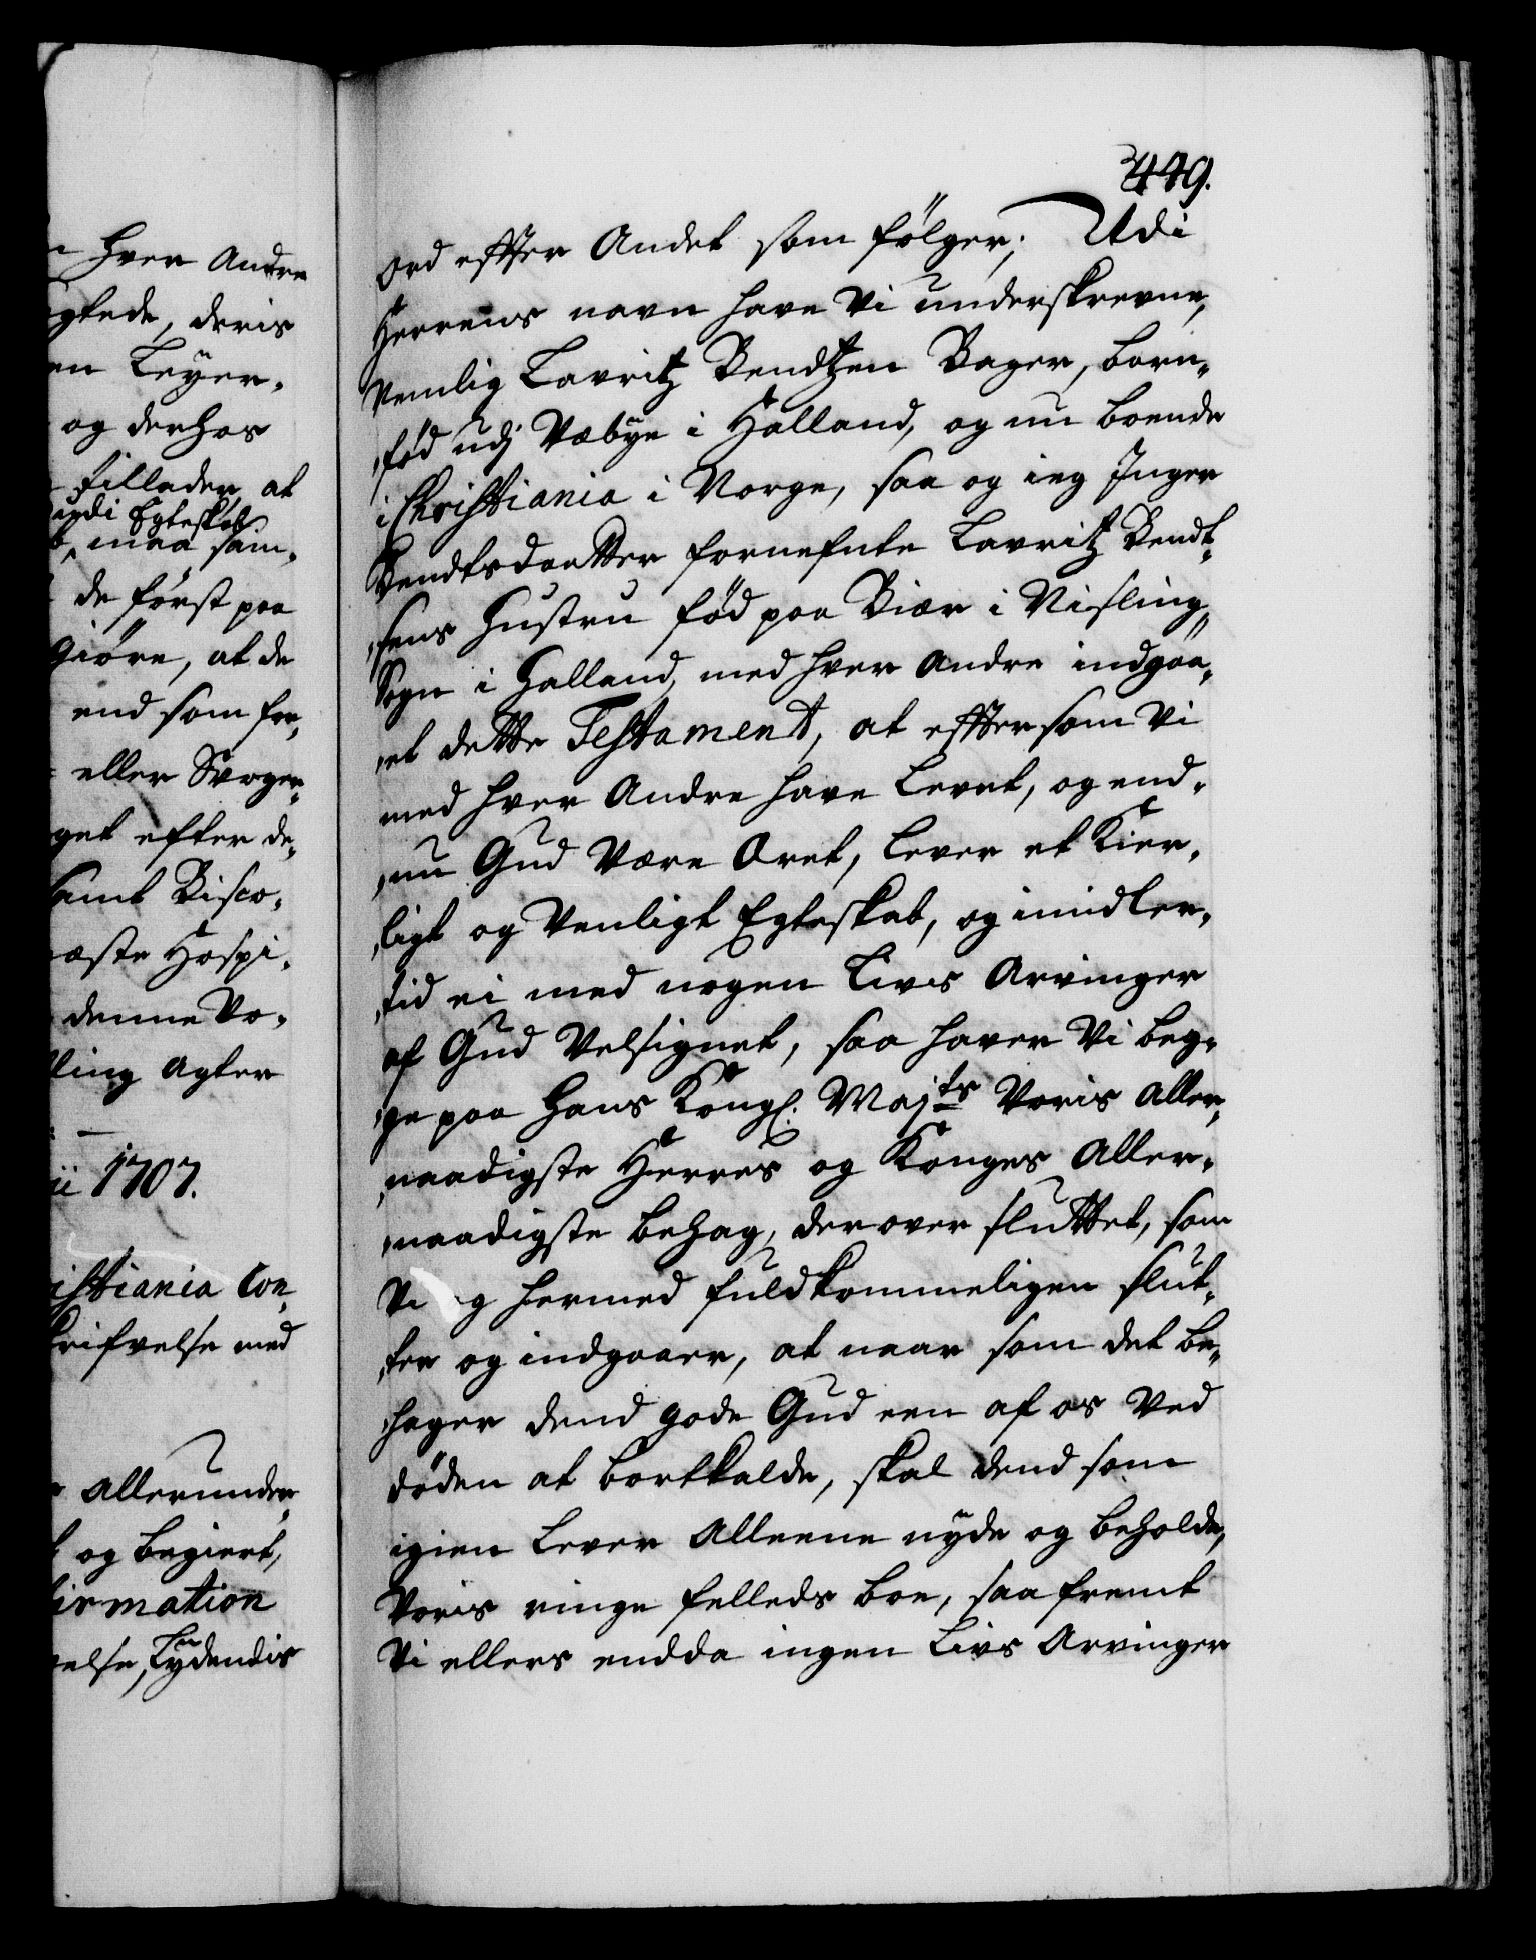 hver Andre
gtede, deris
en Leyer-
og derhos
tillader, at
udi Egteskab
maa sam-
de först paa
giöre, at de
end som for-
eller Svoger-
get efter de-
samt Bisco-
næste Hospi-
denne Vo-
ling agter
ii 1707.
istiania Con-
krifvelse med
Allerunder-
og begiert,
firmation
velse, Lydendis
449.
Ord effter Andet som fölger; Udi
Herrens navn have Vi underskrevne,
Nemlig Lavritz Bendtzen Bager, born-
föd udj Wæbye i Halland, og nu boende
i Christiania i Norge, saa og ieg Inger
Bendtsdaatter fornefnte Lavritz Bendt-
sens Hustru föd paa Biær i Visling
Sogn i Halland, med hver andre indgaa-
et dette Testament, at efftersom Vi
med hver Andre have Levet, og end-
nu Gud Være Æret, Lever et Kier-
ligt og Venligt Egteskab, og imidler-
tid ei med nogen Livs Arvinger
af Gud Velsignet, saa haver Vi beg-
ge paa Hans Kongl. Majts Voris Aller-
naadigste Herres og Konges Aller-
naadigste behag, derover sluttet, som
Vi og hermed fuldkommeligen slut-
ter og indgaaer, at naar som det be-
hager dend gode Gud een af os Ved
döden at bortkalde, skal dend som
igien Lever Alleene nyde og beholde,
Voris ringe felleds boe, saafremt
Vi ellers endda ingen Livs Arvinger